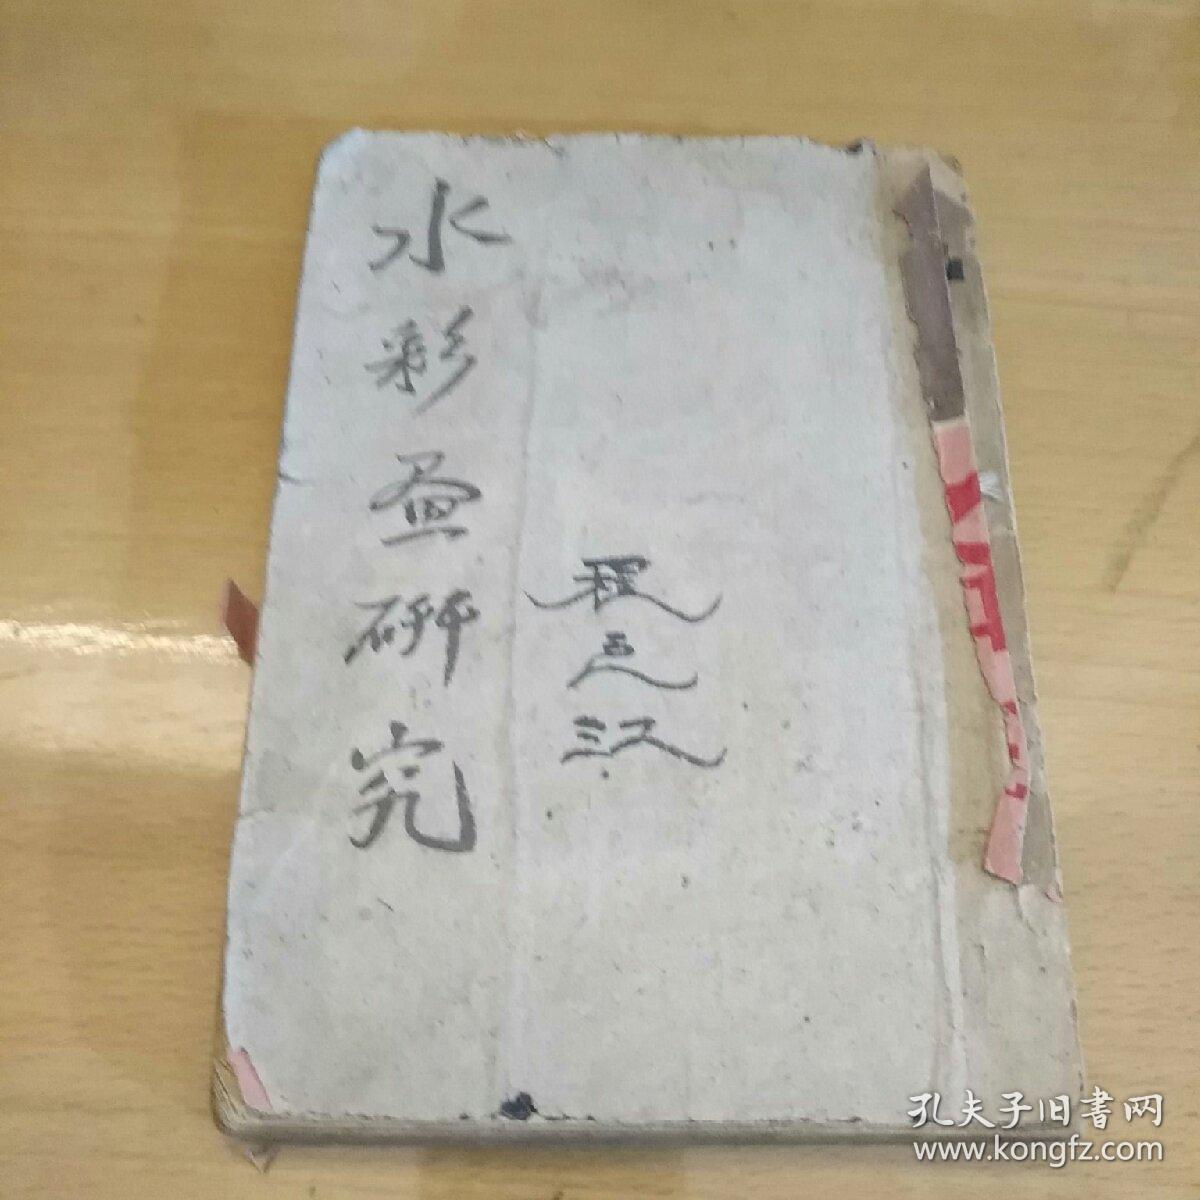 水彩畫硏究
程
孔夫子旧書网
www.kongfz.com